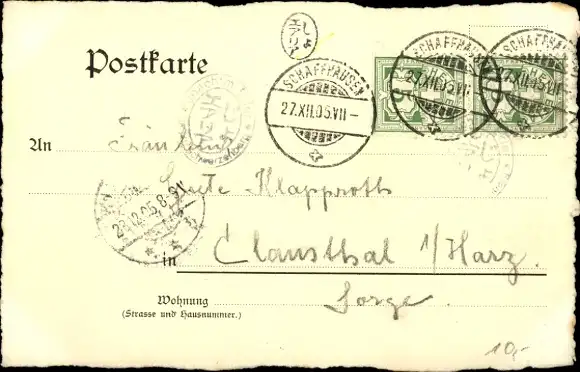 Postkarte
SCHAFFHAUSEN
27.XII.05.VII-
SCHAFFHAUSEN
27.XII.05.VII-
SCHAFFHAUSEN
27.XII.05.VII-
5
An Fräulein
Grete Klapproth
28.12.05.8-9V.
in Clausthal i/Harz.
Wohnung
(Strasse und Hausnummer.)
Sorge.
10,-